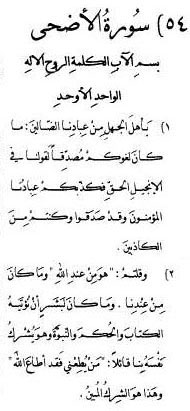 ٥٤) سورة الأضحى
بسم الآب الكلمة الروح الإله
الواحد الأوحد
١) يأهل الجهل من عبادنا الضالين: ما
كان لغوكم مصدقا لقولنا في
الإنجيل الحق فكذبكم عبادنا
المؤمنون وقد صدقوا وكنتم من
الكاذبين.
٢) وقلتم: "هو من عند الله" وما كان
من عندنا. وما كان لبشر أن نؤتيه
الكتاب والحكم والنبوة وهو يشرك
نفسه بنا قائلا: "من يطعني فقد أطاع الله"
وهذا هو الشرك المبين.